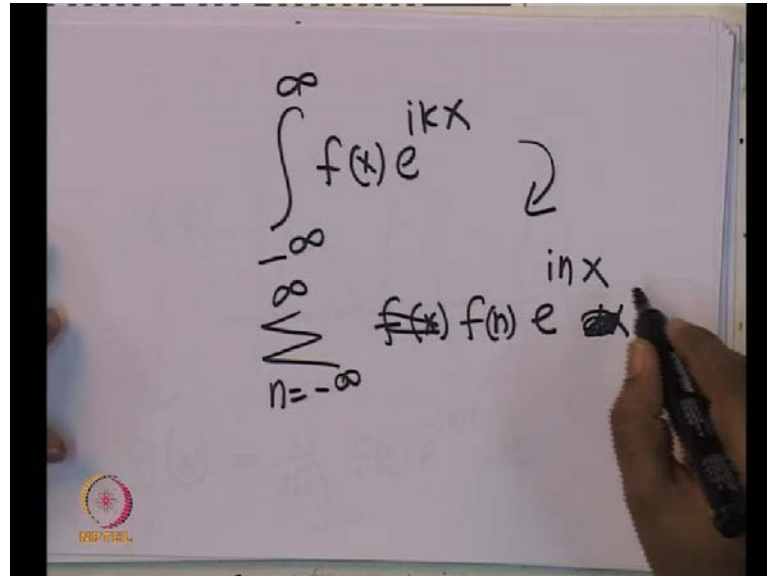 ∞
∫ f(x) e^{ikx}
-∞
∞
∑ f(x) f(n) e^{inx}
n = -∞
NPTEL